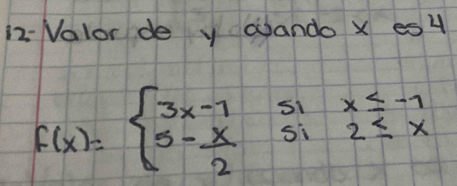 12- Valor de y cuando x es 4
f(x)= { 3x-1 si x ≤ -1
5 - x/2 si 2 ≤ x